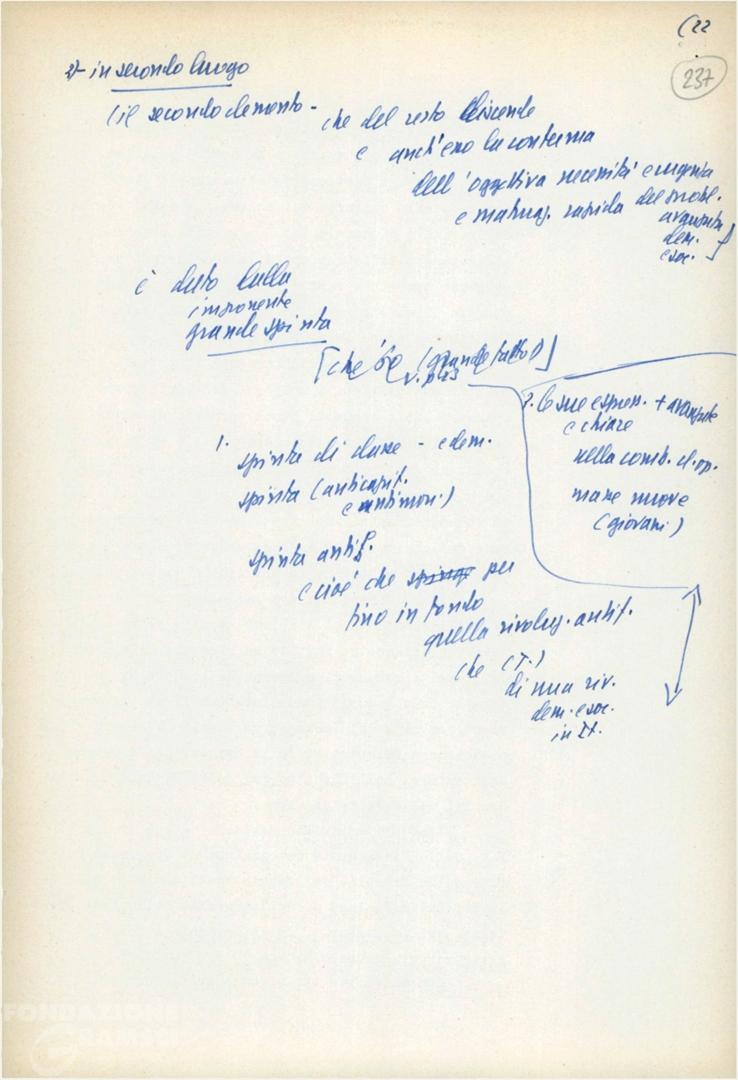 (22
237
2- in secondo luogo
(il secondo elemento -
che del resto discende
e anch'esso la conferma
dell'oggettiva necessità e urgenza
e maturaz. rapida del probl.
avanzata
dem.
e soc.]
è dato dalla
imponente
grande spinta
[che c'è (grande fatto D]
v. p. 23
1.
spinta di classe - e dem.
spinta (anticapit.
e antimon.)
spinta antif.
e cioè che spinge per
fino in fondo
quella rivoluz. antif.
che (T.)
di una riv.
dem. e soc.
in It.
2. le sue espress. + avanzate
e chiare
nella comb. cl. op.
masse nuove
(giovani)
FONDAZIONE
GRAMSCI